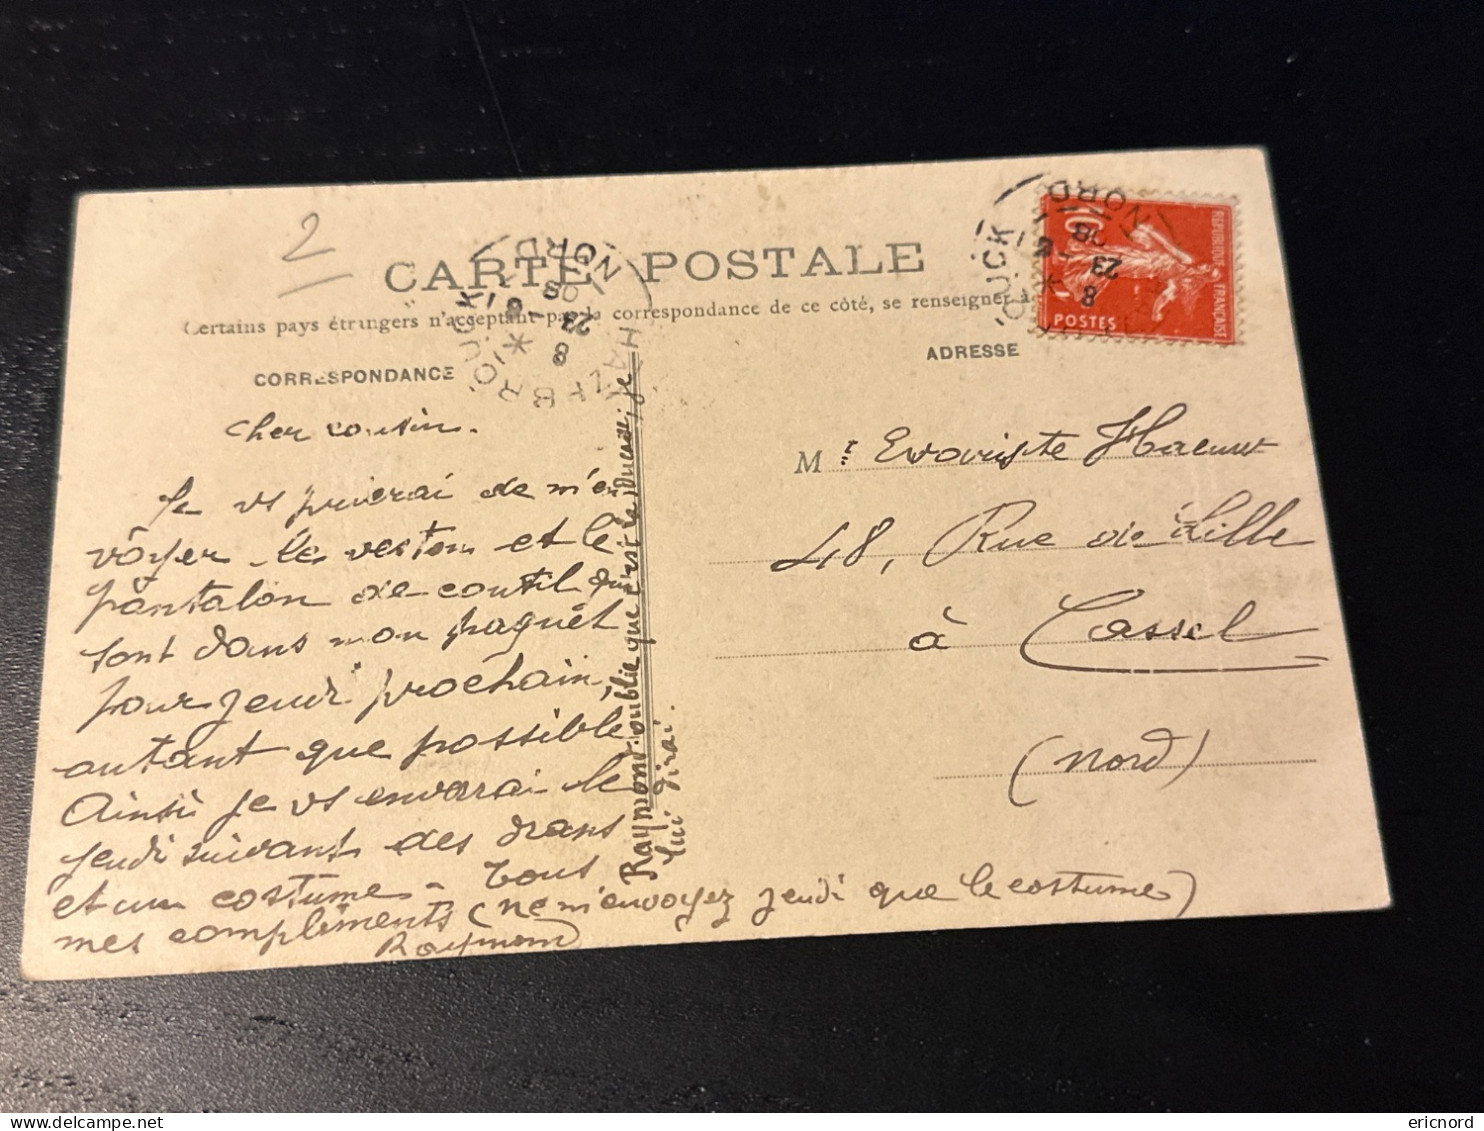 2
CARTE POSTALE
Certains pays étrangers n'acceptant pas la correspondance de ce côté, se renseigner à
CORRESPONDANCE
ADRESSE
HAZEBROUCK
NORD
8
23
10
POSTES
REPUBLIQUE FRANÇAISE
Cher cousin.
Je vs prierai de m'en
voyer le veston et le
pantalon de coutil qui
sont dans mon paquêt
pour jeudi prochain,
autant que possible
Ainsi je vs enverai le
jeudi suivant des draps
et un costume - Tous
mes compliments (ne m'envoyez jeudi que le costume)
Raymond
Raymond oublie que c'est la ducasse, je
lui dirai.
Mr Evariste
48, Rue de Lille
à Cassel
(Nord)
ericnord